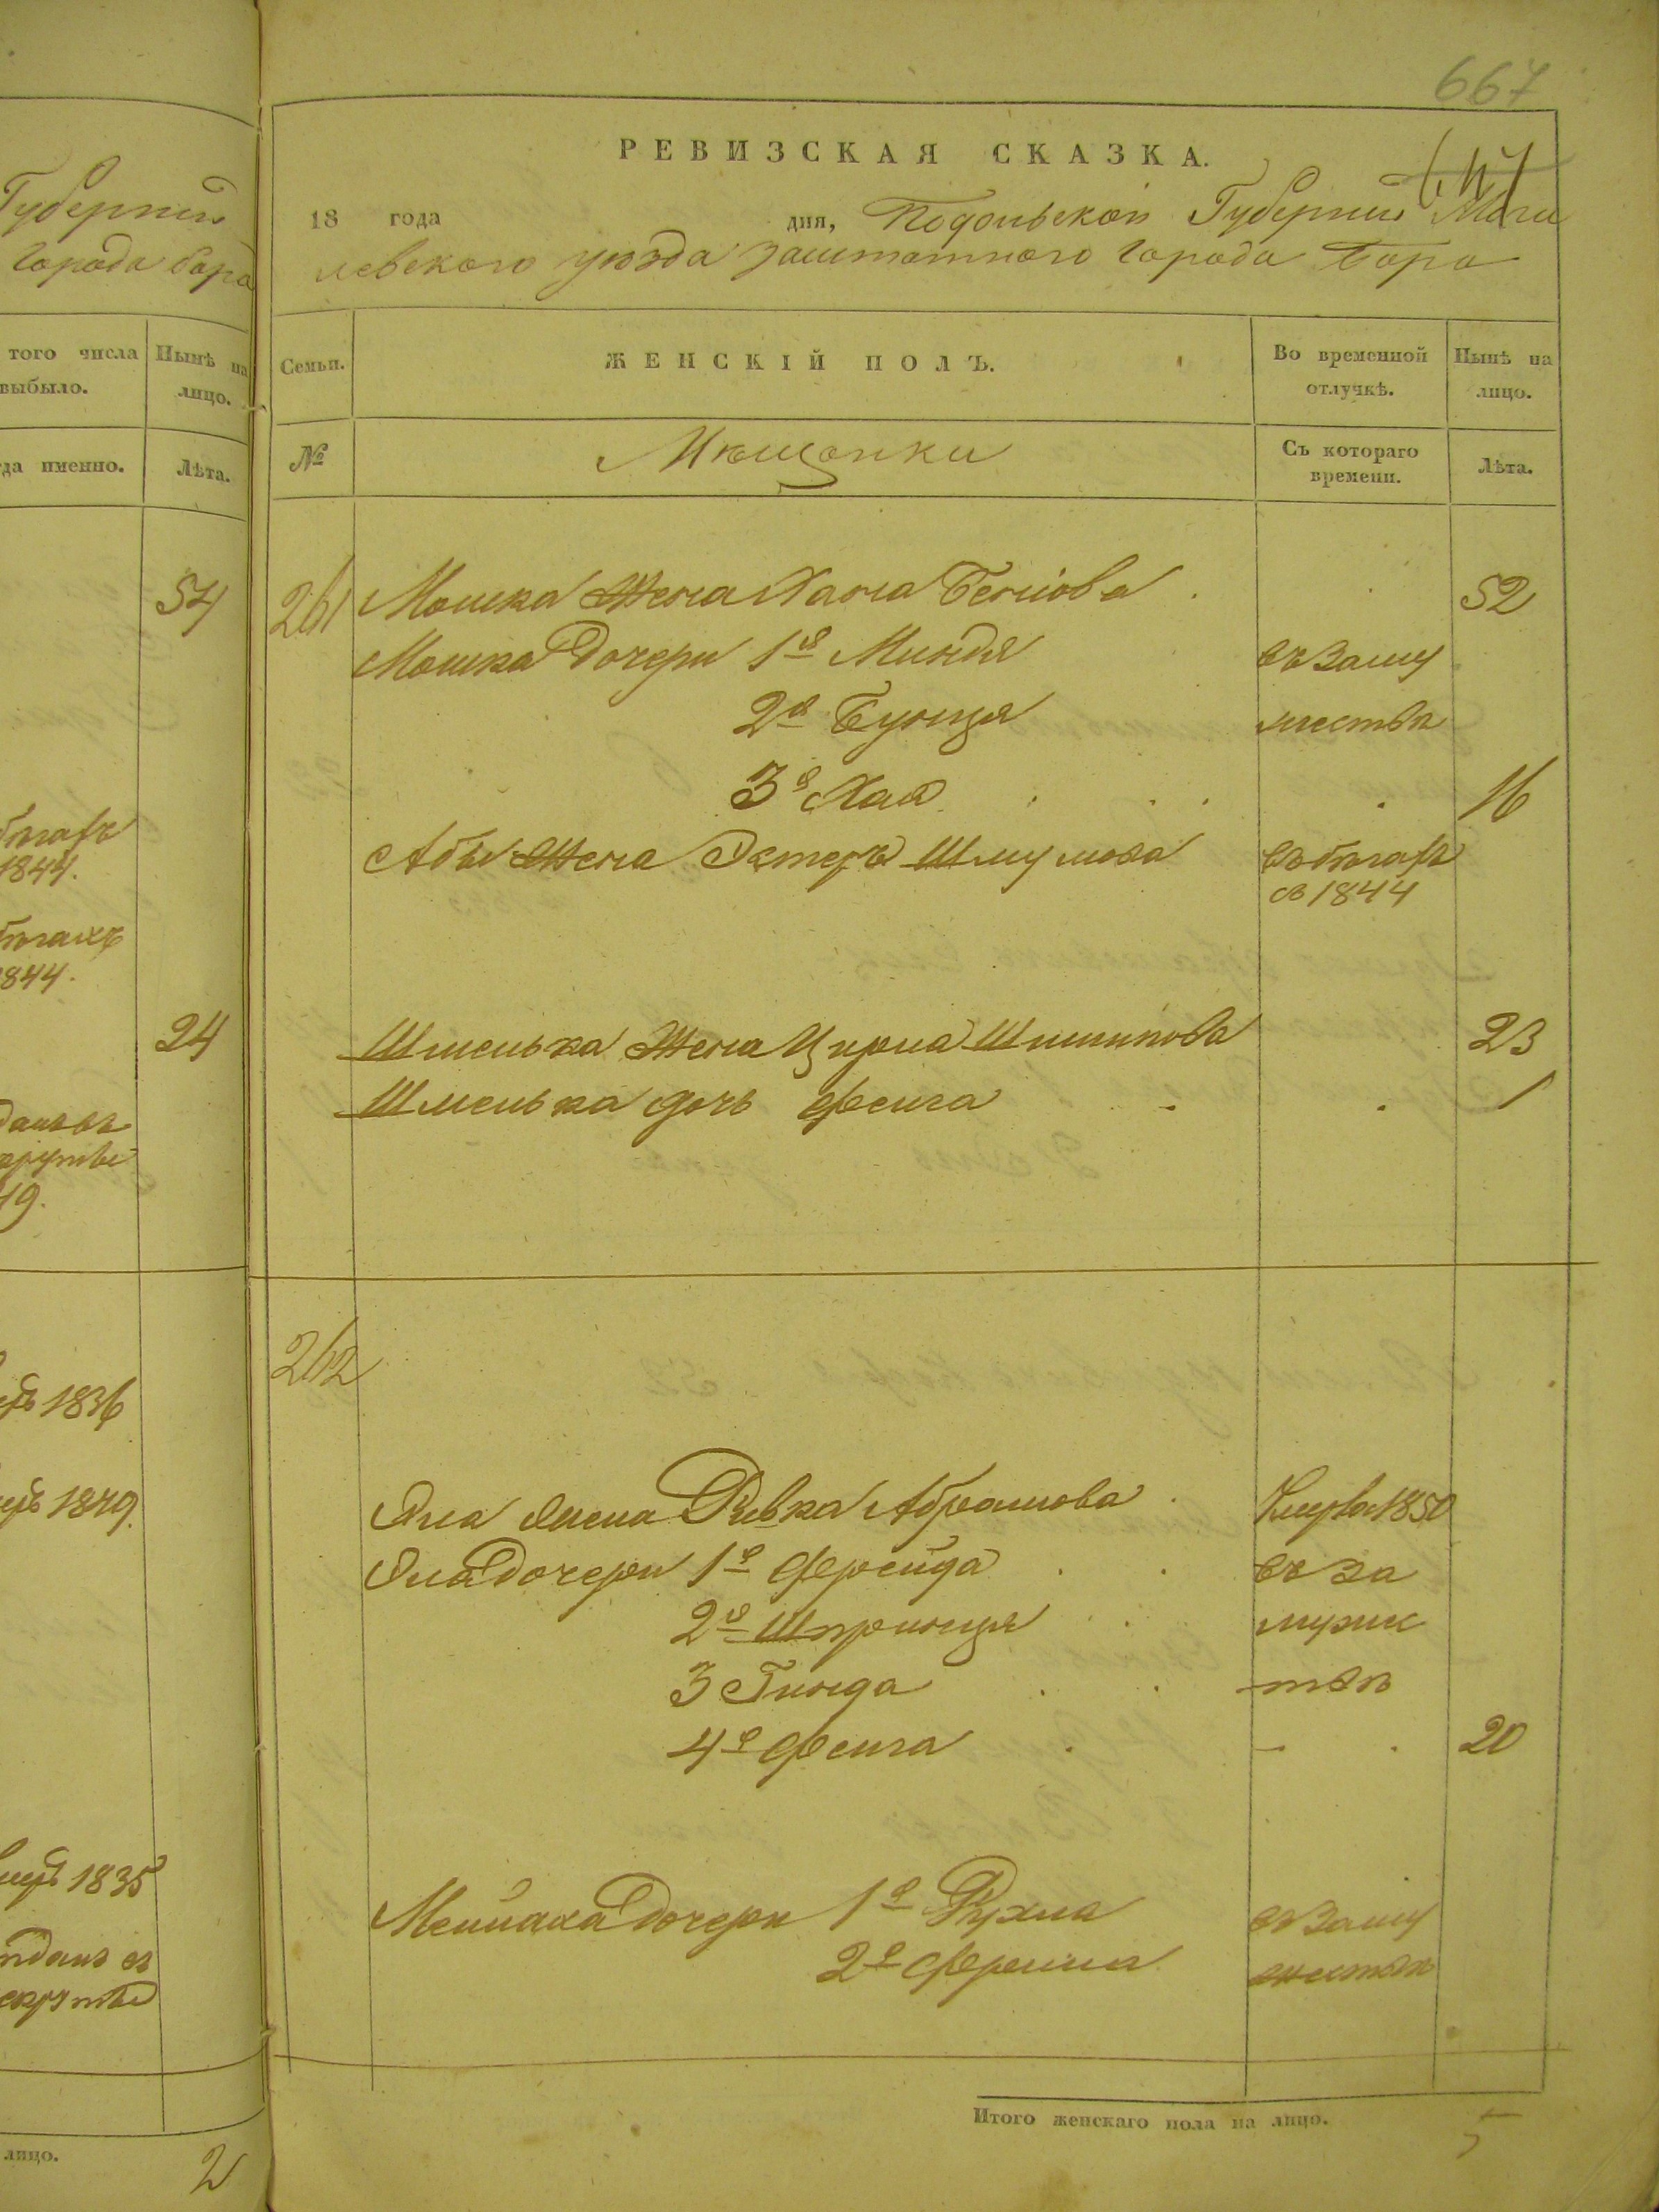 Губерніи
Города Бара
того числа
выбыло.
Нынѣ на
лицо.
да именно.
Лѣта.
54
бѣгахъ
1844.
бѣгахъ
1844.
24
19.
1836
1849.
1835
лицо.
2
667
РЕВИЗСКАЯ СКАЗКА.
18 года дня, Подольской Губерніи Моги
левского уѣзда заштатного города Бара
Семьи.
ЖЕНСКІЙ ПОЛЪ.
Во временной
отлучкѣ.
Нынѣ на
лицо.
№
Мѣщанки
Съ котораго
времени.
Лѣта.
261 Мошка Жена Хана Беніова 52
Мошка Дочери 1я Миндя въ Заму
2я Бунця жествѣ
3я Хая 16
Абы Жена Эстеръ Шмулова въ бѣгахъ
съ 1844
Шмелька Жена Цирла Шмилова 23
Шмелька дочь Фейга 1
262
Жена Ривка Абрамова 1850
дочери 1я Фрейда въ за
2я Шпринця мужес
3 Гинда твѣ
4я Фейга 20
Дочери 1я Рухля въ Заму
2я жествѣ
Итого женскаго пола на лицо. 5